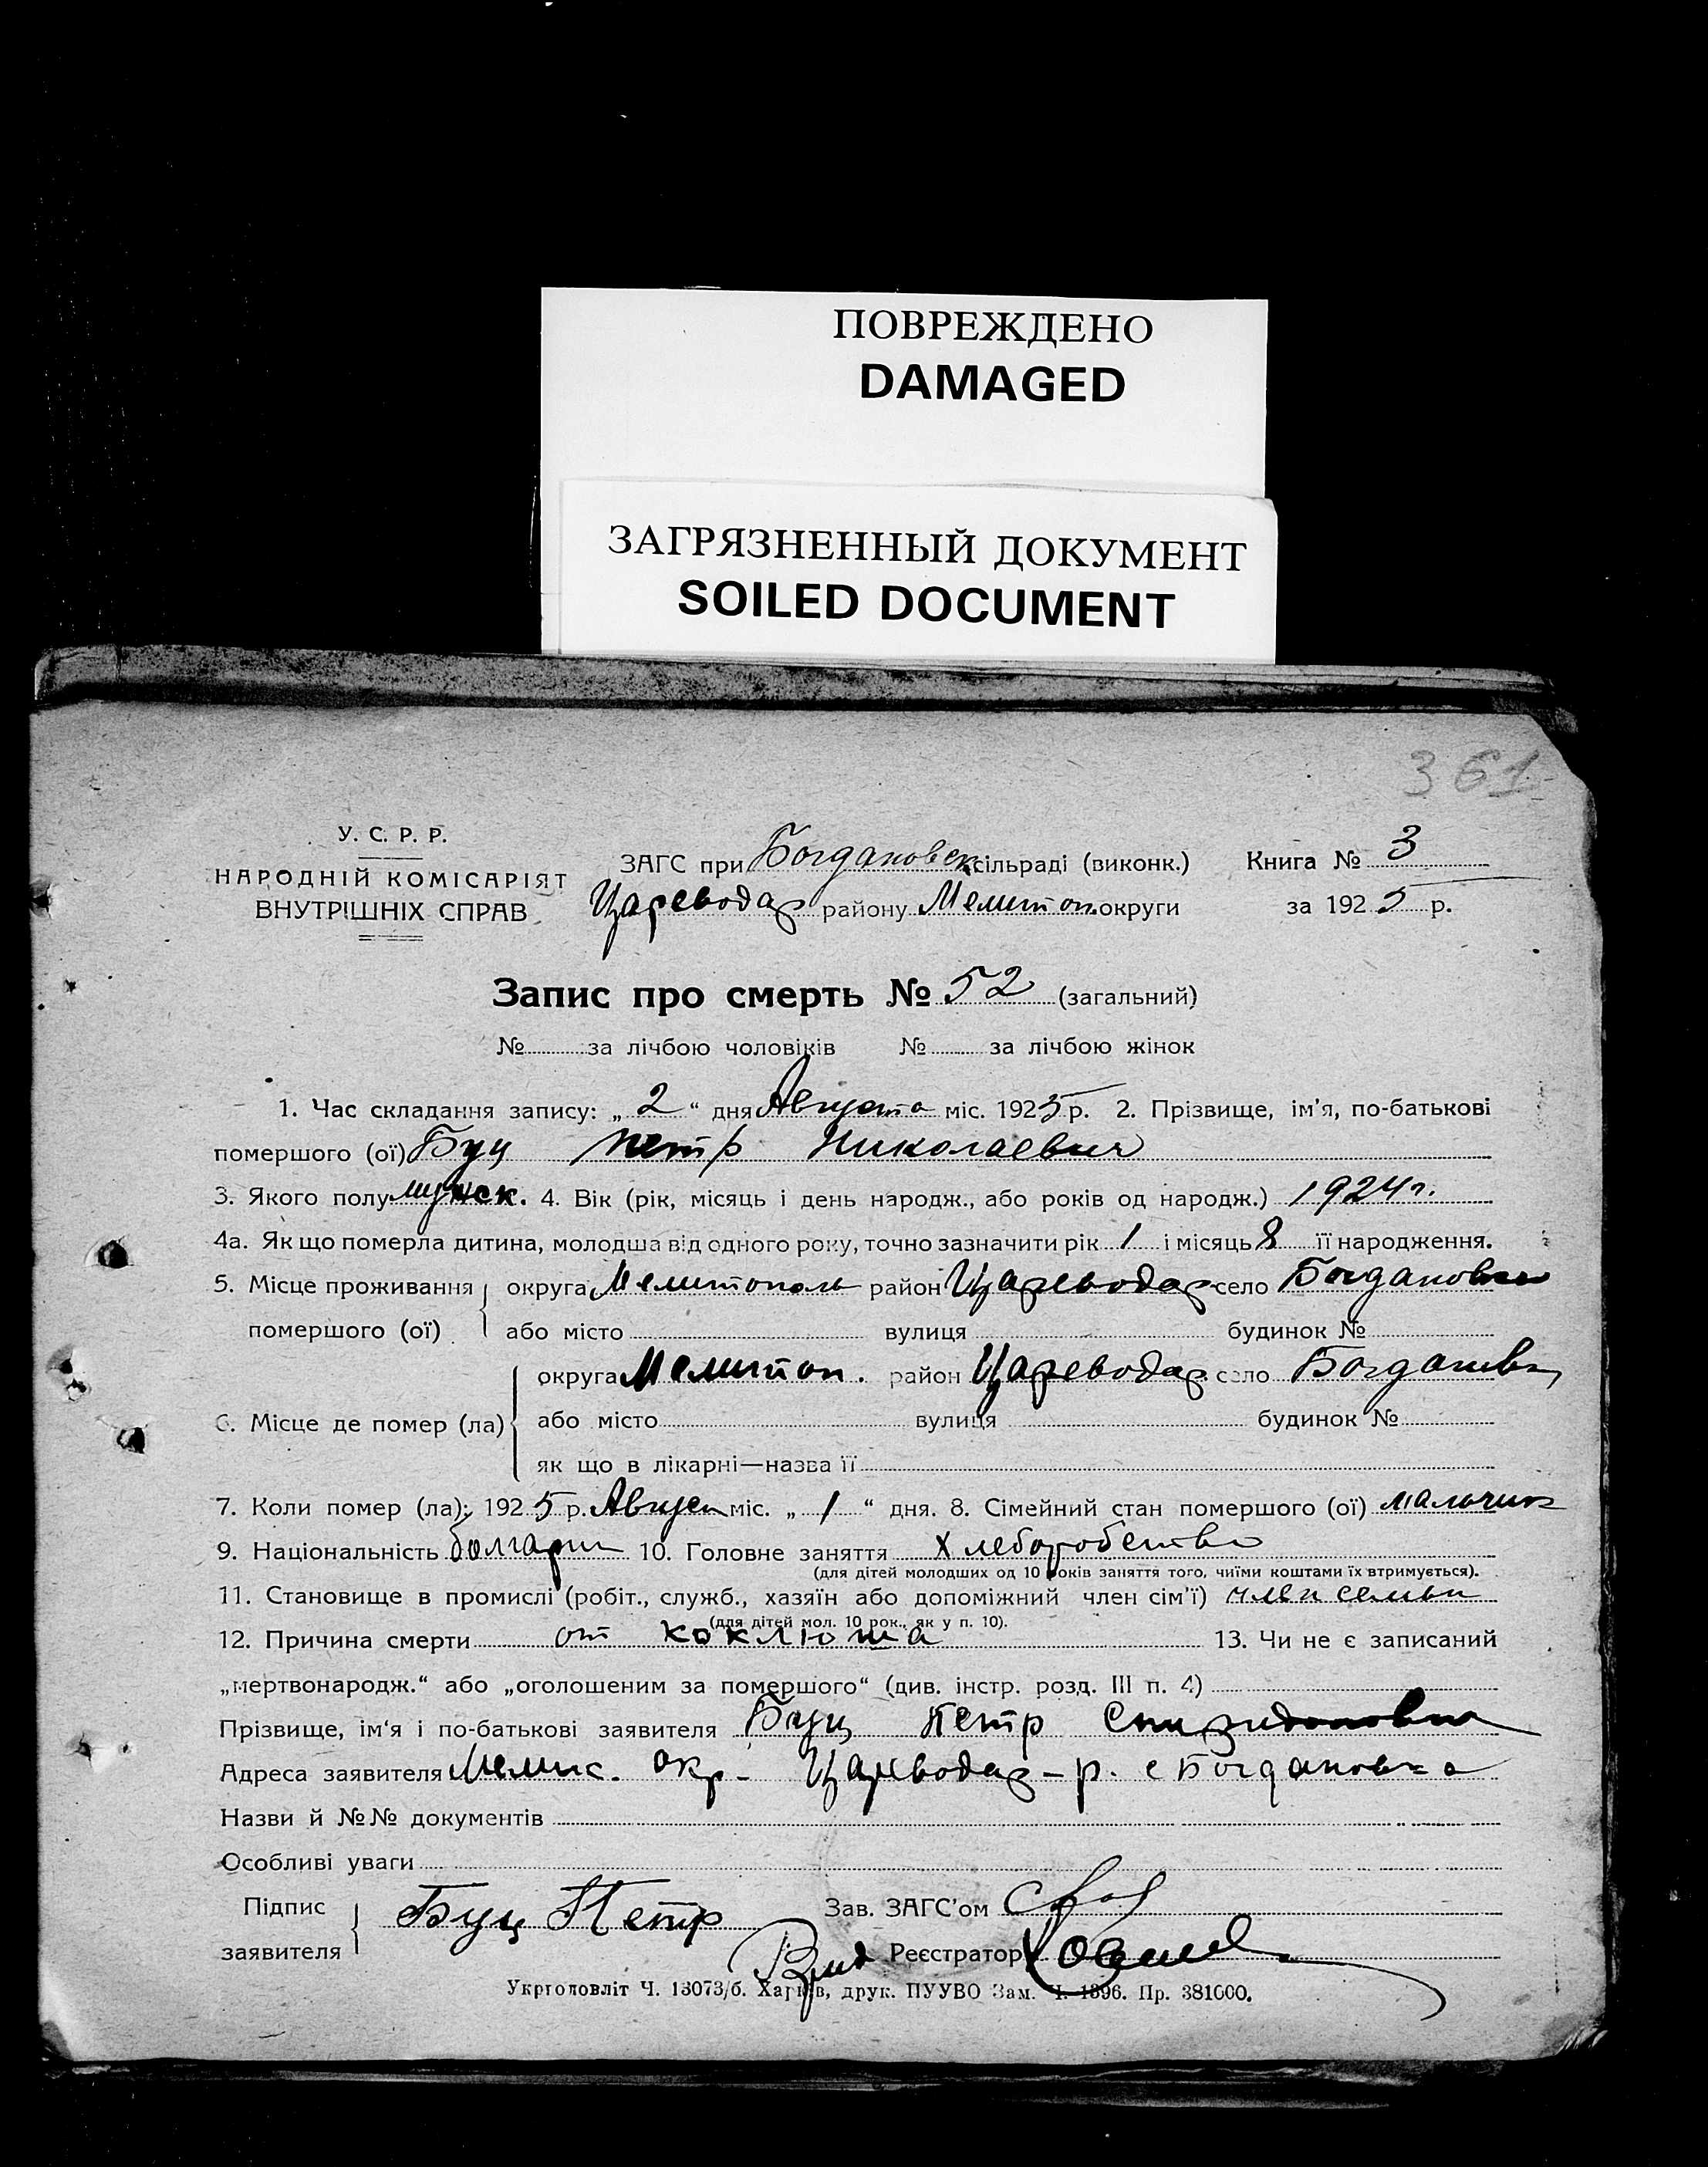 ПОВРЕЖДЕНО
DAMAGED
ЗАГРЯЗНЕННЫЙ ДОКУМЕНТ
SOILED DOCUMENT
361
У. С. Р. Р.
НАРОДНІЙ КОМІСАРІЯТ
ВНУТРІШНІХ СПРАВ
ЗАГС при Богдановск сільраді (виконк.) Книга № 3
Цареводар району Мелитоп. округи за 1925 р.
Запис про смерть № 52 (загальний)
№ за лічбою чоловіків № за лічбою жінок
1. Час складання запису: „2“ дня Августа міс. 1925 р. 2. Прізвище, ім'я, по-батькові
помершого (ої) Буц Петр Николаевич
3. Якого полу мужск. 4. Вік (рік, місяць і день народж., або років од народж.) 1924 г.
4а. Як що померла дитина, молодша від одного року, точно зазначити рік 1 і місяць 8 її народження.
5. Місце проживання округа Мелитополь район Цареводар село Богдановка
помершого (ої) або місто вулиця будинок №
округа Мелитоп. район Цареводар. село Богдановка
6. Місце де помер (ла) або місто вулиця будинок №
як що в лікарні—назва її
7. Коли помер (ла): 1925 р. Август міс. „1“ дня. 8. Сімейний стан помершого (ої) мальчик
9. Національність болгарин 10. Головне заняття Хлеборобство
(для дітей молодших од 10 років заняття того, чиїми коштами їх втримується).
11. Становище в промислі (робіт., служб., хазяїн або допоміжний член сім'ї) член семьи
(для дітей мол. 10 рок., як у п. 10).
12. Причина смерти от коклюша 13. Чи не є записаний
„мертвонародж.“ або „оголошеним за помершого“ (див. інстр. розд. III п. 4)
Прізвище, ім'я і по-батькові заявителя Буц Петр Спиридонович
Адреса заявителя Мелит. окр- Цареводар-р. с Богдановка
Назви й №№ документів
Особливі уваги
Підпис заявителя Буц Петр Зав. ЗАГС'ом
Реєстратор
Укрголовліт Ч. 13073/б. Харків, друк. ПУУВО Зам. Ч. 1396. Пр. 381000.